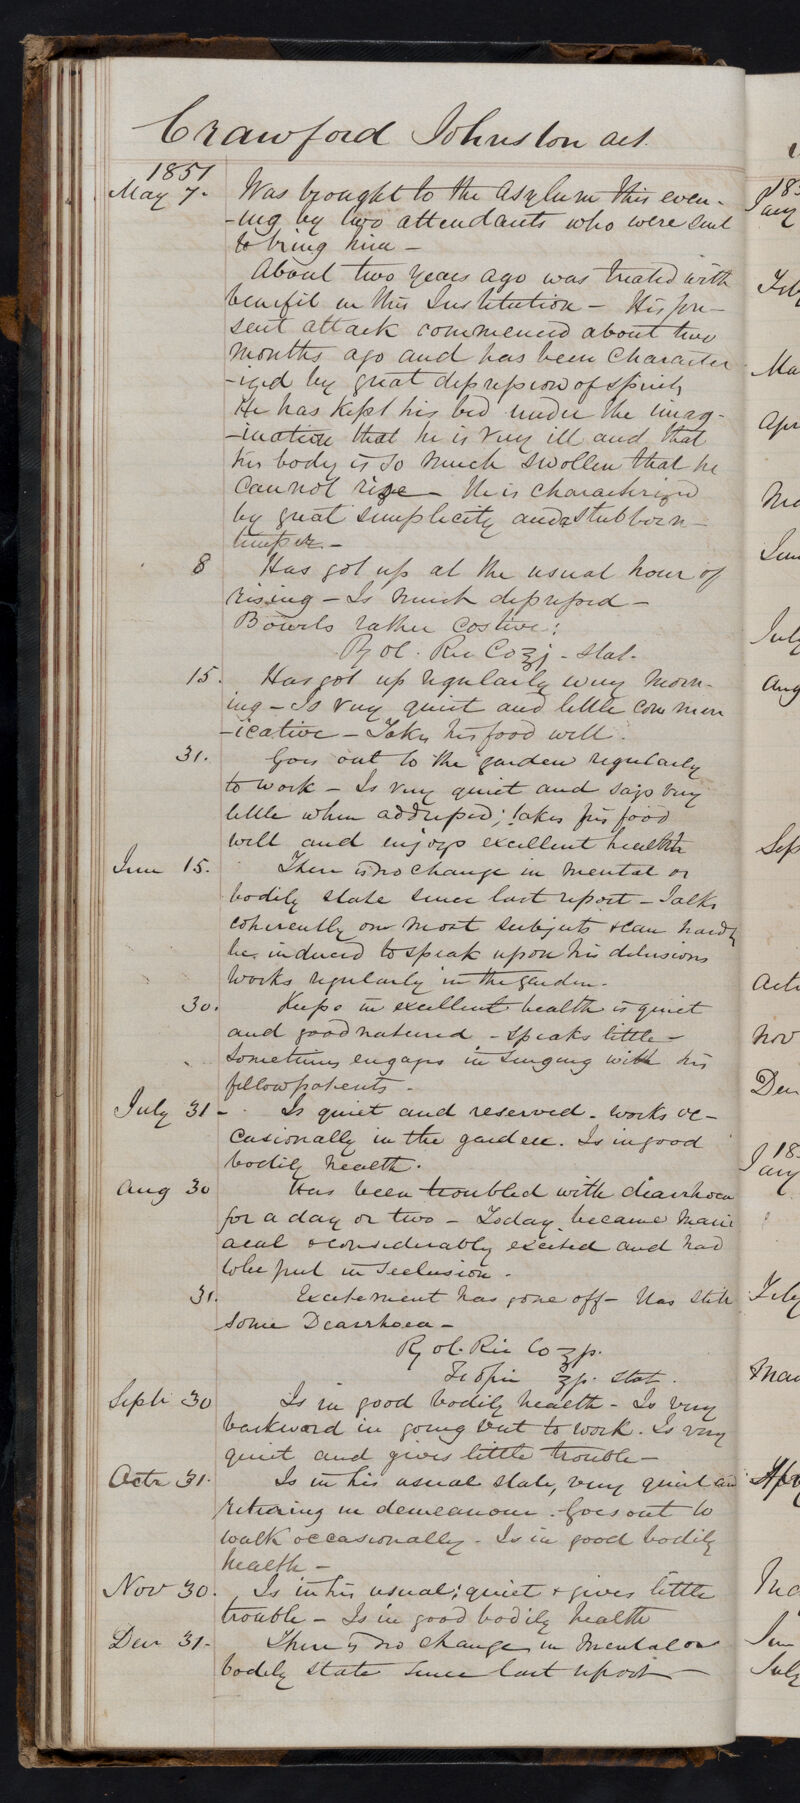 Crawford Johnston aet.
1851
May 7. Was brought to the Asylum this even-
-ing by two attendants who were sent
to bring him -
About two years ago was treated with
benefit in this Institution - His pre-
sent attack commenced about two
months ago and has been character
-ized by great depression of spirits
He has kept his bed under the imag-
-ination that he is very ill and that
his body is so much swollen that he
cannot rise - He is characterized
by great simplicity and stubborn
temper -
8 Has got up at the usual hour of
rising - Is much depressed -
Bowels rather costive:
Ol. Ric ℥j - stat.
15. Has got up regularly every morn-
ing - Is very quiet and little commun
-icative - Takes his food well.
31. Goes out to the garden regularly
to work - Is very quiet and says very
little when addressed; takes his food
well and enjoys excellent health
June 15. There is no change in mental or
bodily state since last report - Talks
coherently on most subjects & can hardly
be induced to speak upon his delusions
Works regularly in the garden.
30. Keeps in excellent health is quiet
and good natured - speaks little -
Sometimes engages in singing with his
fellow patients -
July 31 - Is quiet and reserved - works oc-
casionally in the garden. Is in good
bodily health.
Aug 30 Has been troubled with diarrhoea
for a day or two - Today became mani
acal & considerably excited and had
to be put in seclusion.
31. Excitement has gone off - Has still
some Diarrhoea -
Ol. Ric
stat.
Septr 30 Is in good bodily health - Is very
backward in going out to work. Is very
quiet and gives little trouble -
Octr 31. Is in his usual state, very quiet and
retiring in demeanour. Goes out to
walk occasionally - Is in good bodily
health -
Nov 30. Is in his usual; quiet & gives little
trouble - Is in good bodily health
Decr 31. There is no change in mental or
bodily state since last report -
Jany
Feb
Ma
Apr
Ma
June
July
Aug
Sep
Octr
Nov
Dec
Jany
Feby
Mar
Apr
June
July